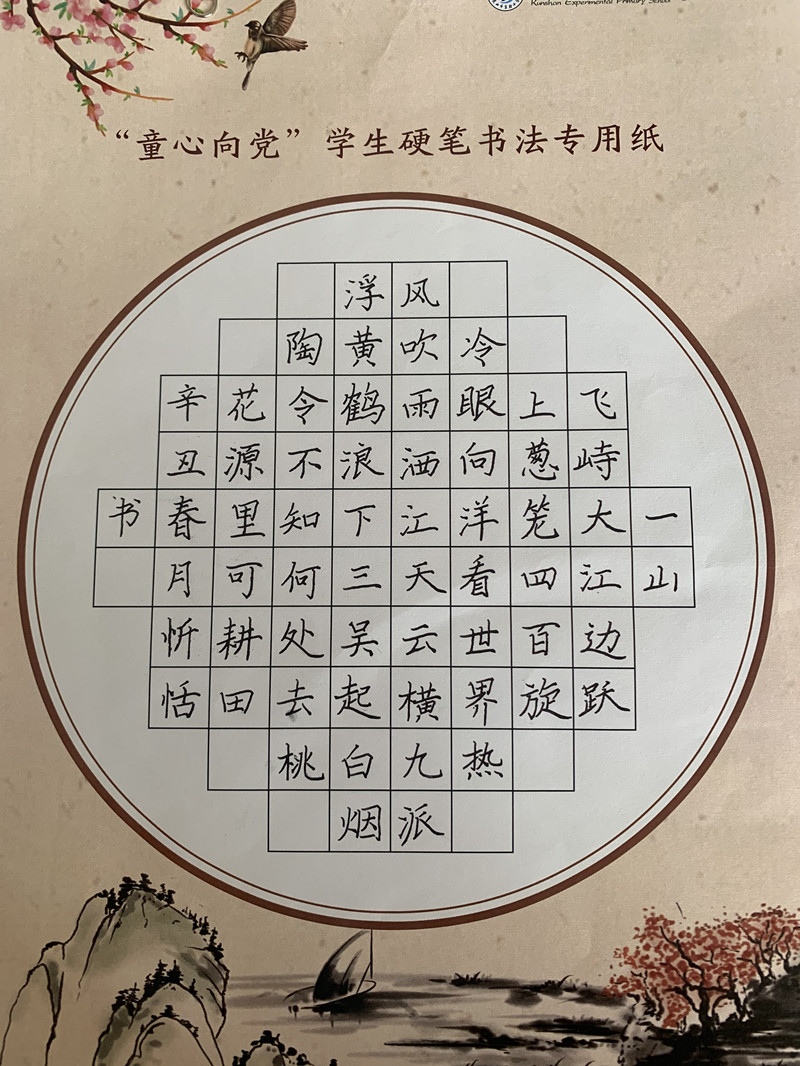 Kunshan Experimental Primary School
“童心向党”学生硬笔书法专用纸
一山
飞峙大江边跃
上葱笼四百旋
冷眼向洋看世界热
风吹雨洒江天云横九派
浮黄鹤浪下三吴起白烟
陶令不知何处去桃
花源里可耕田
辛丑春月忻恬
书